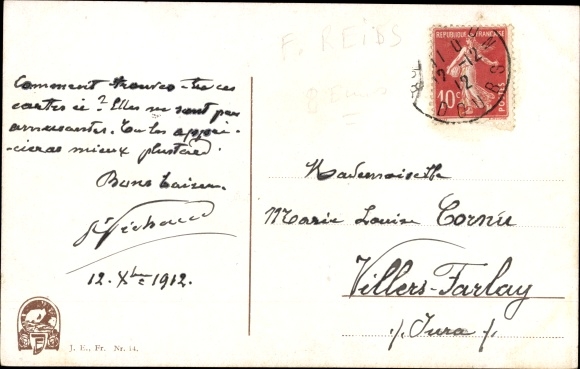 F. REIBS
REPUBLIQUE FRANÇAISE
10c
12-12
12
Comment trouves-tu ces
cartes ci? Elles ne sont pas
amusantes. Tu les appré-
-cieras mieux plus tard.
Bons baisers.
12. Xbre 1912.
Mademoiselle
Marie Louise Cornu
Villers-Farlay
./. Jura ./.
J. E., Fr. Nr. 14.